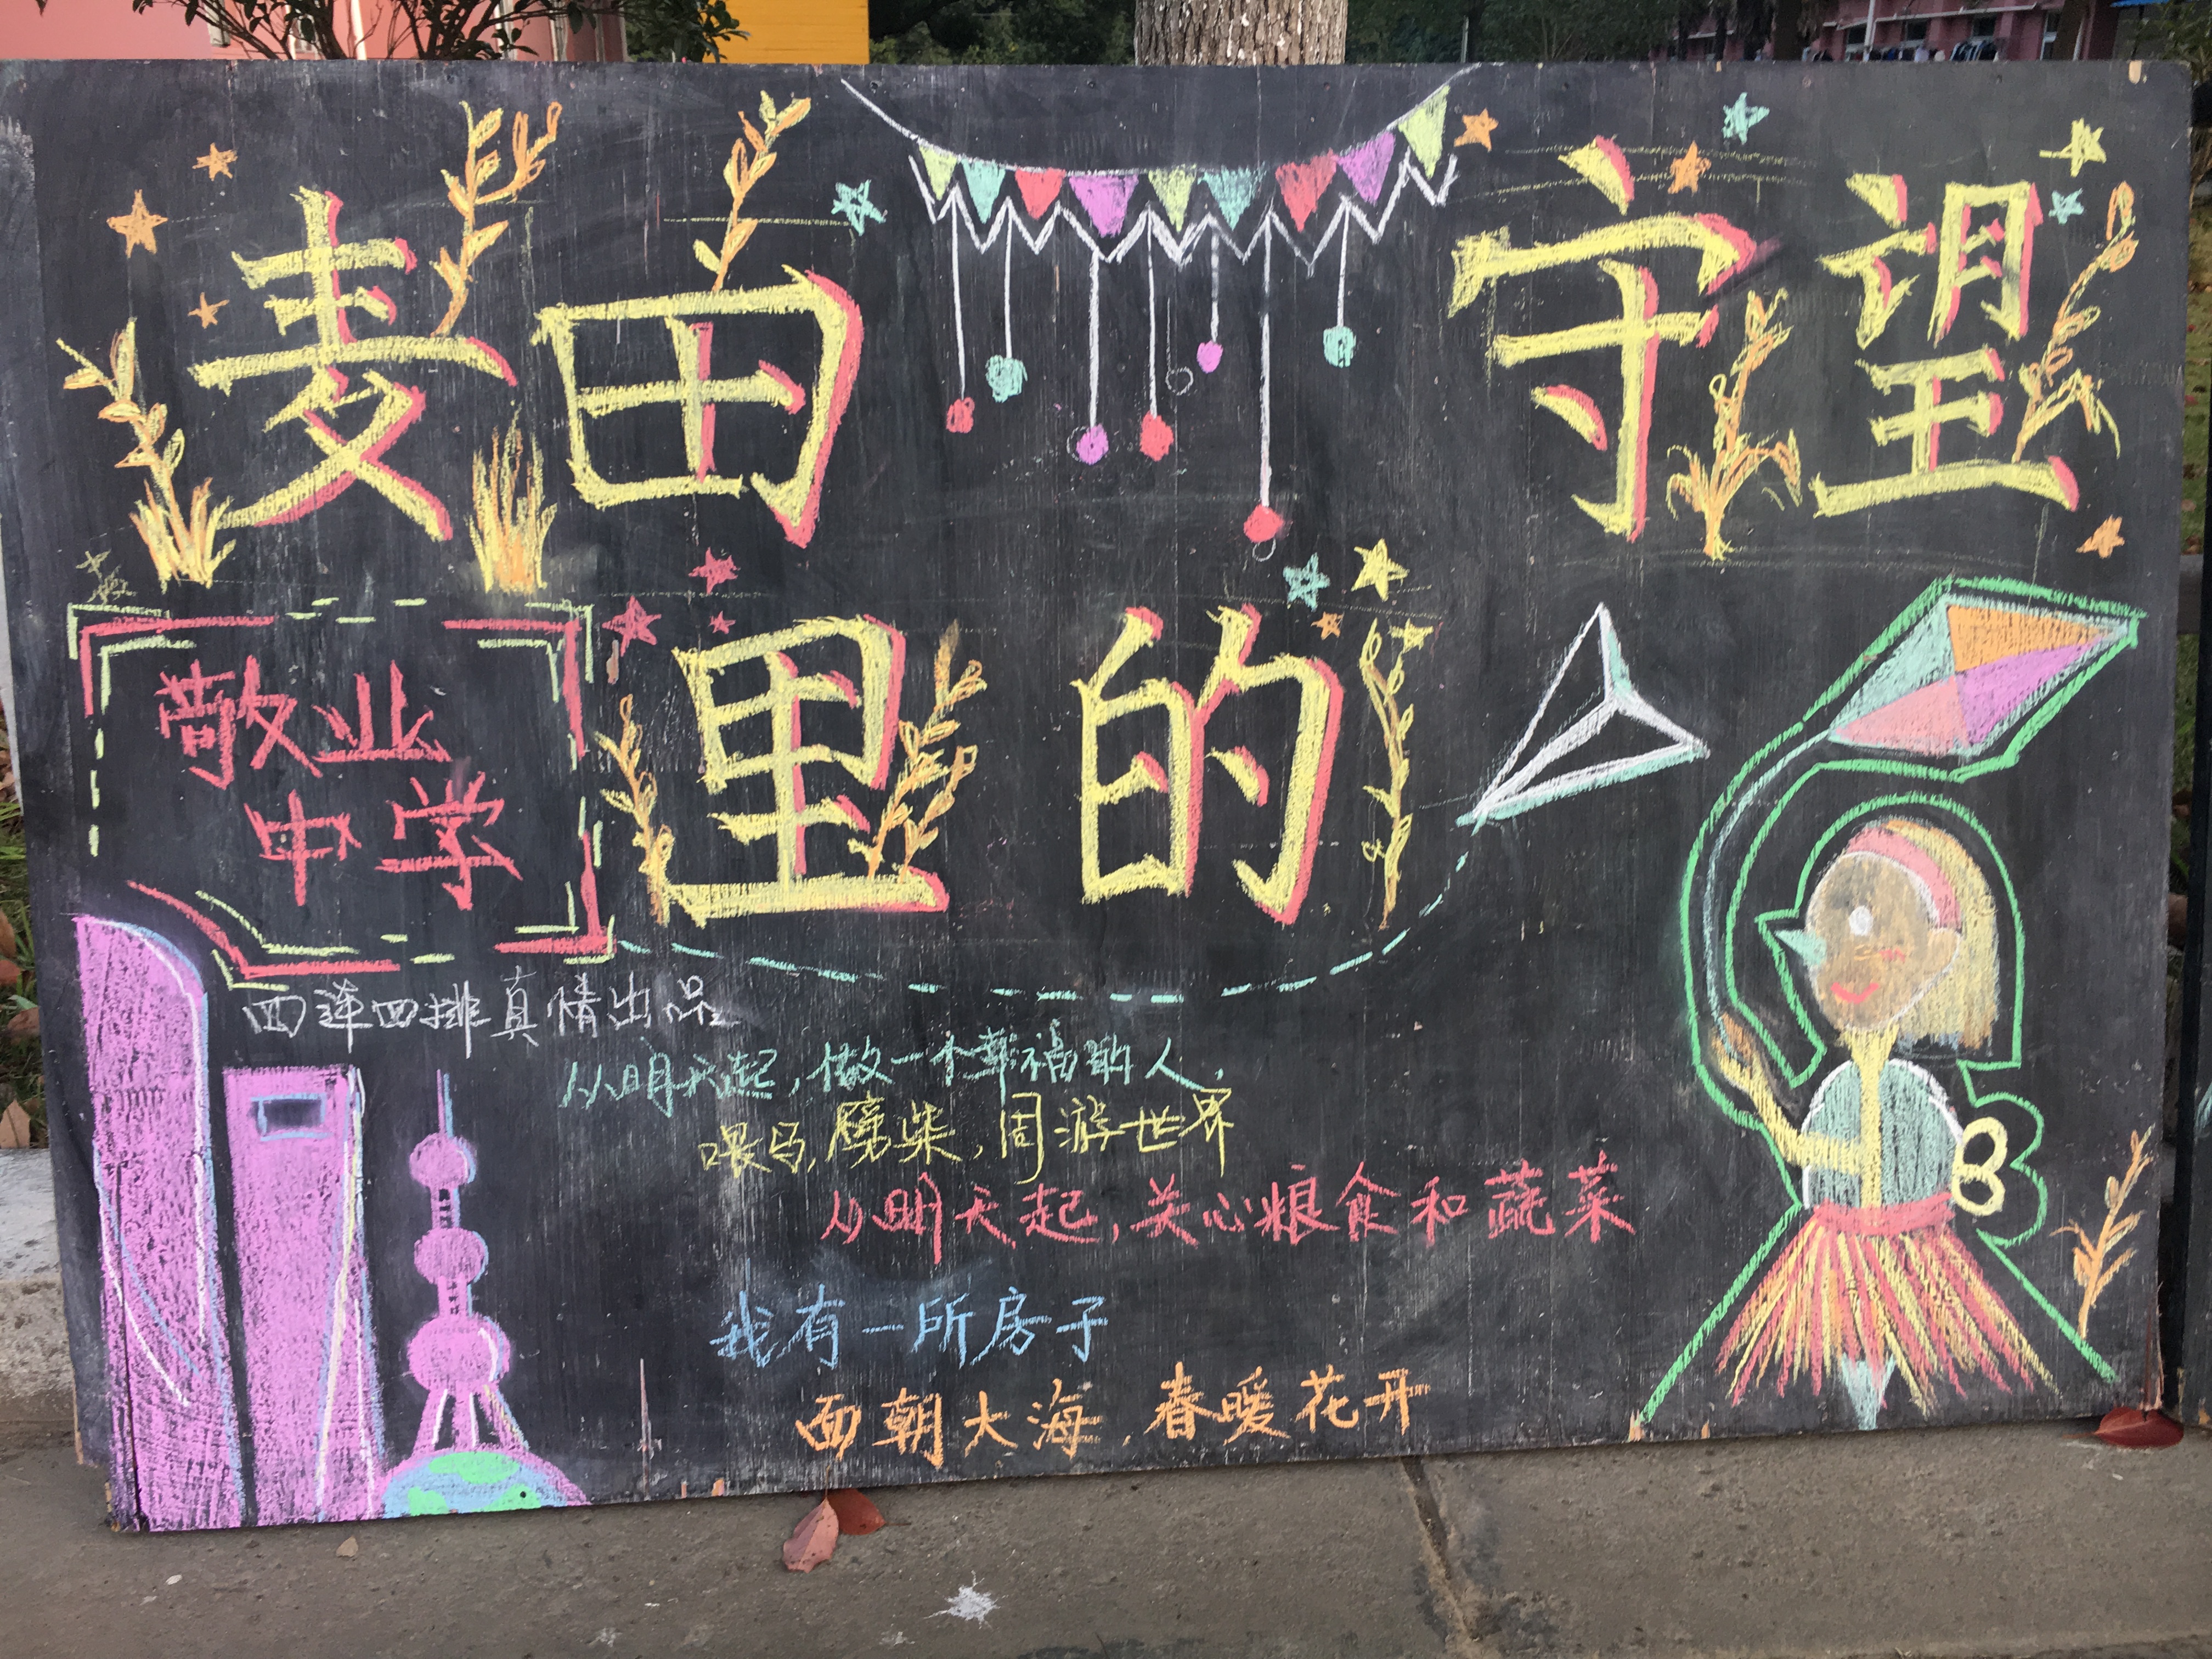 麦田
守望
里的
敬业
中学
四连四排真情出品
从明天起，做一个幸福的人，
喂马，劈柴，周游世界
从明天起，关心粮食和蔬菜
我有一所房子
面朝大海，春暖花开